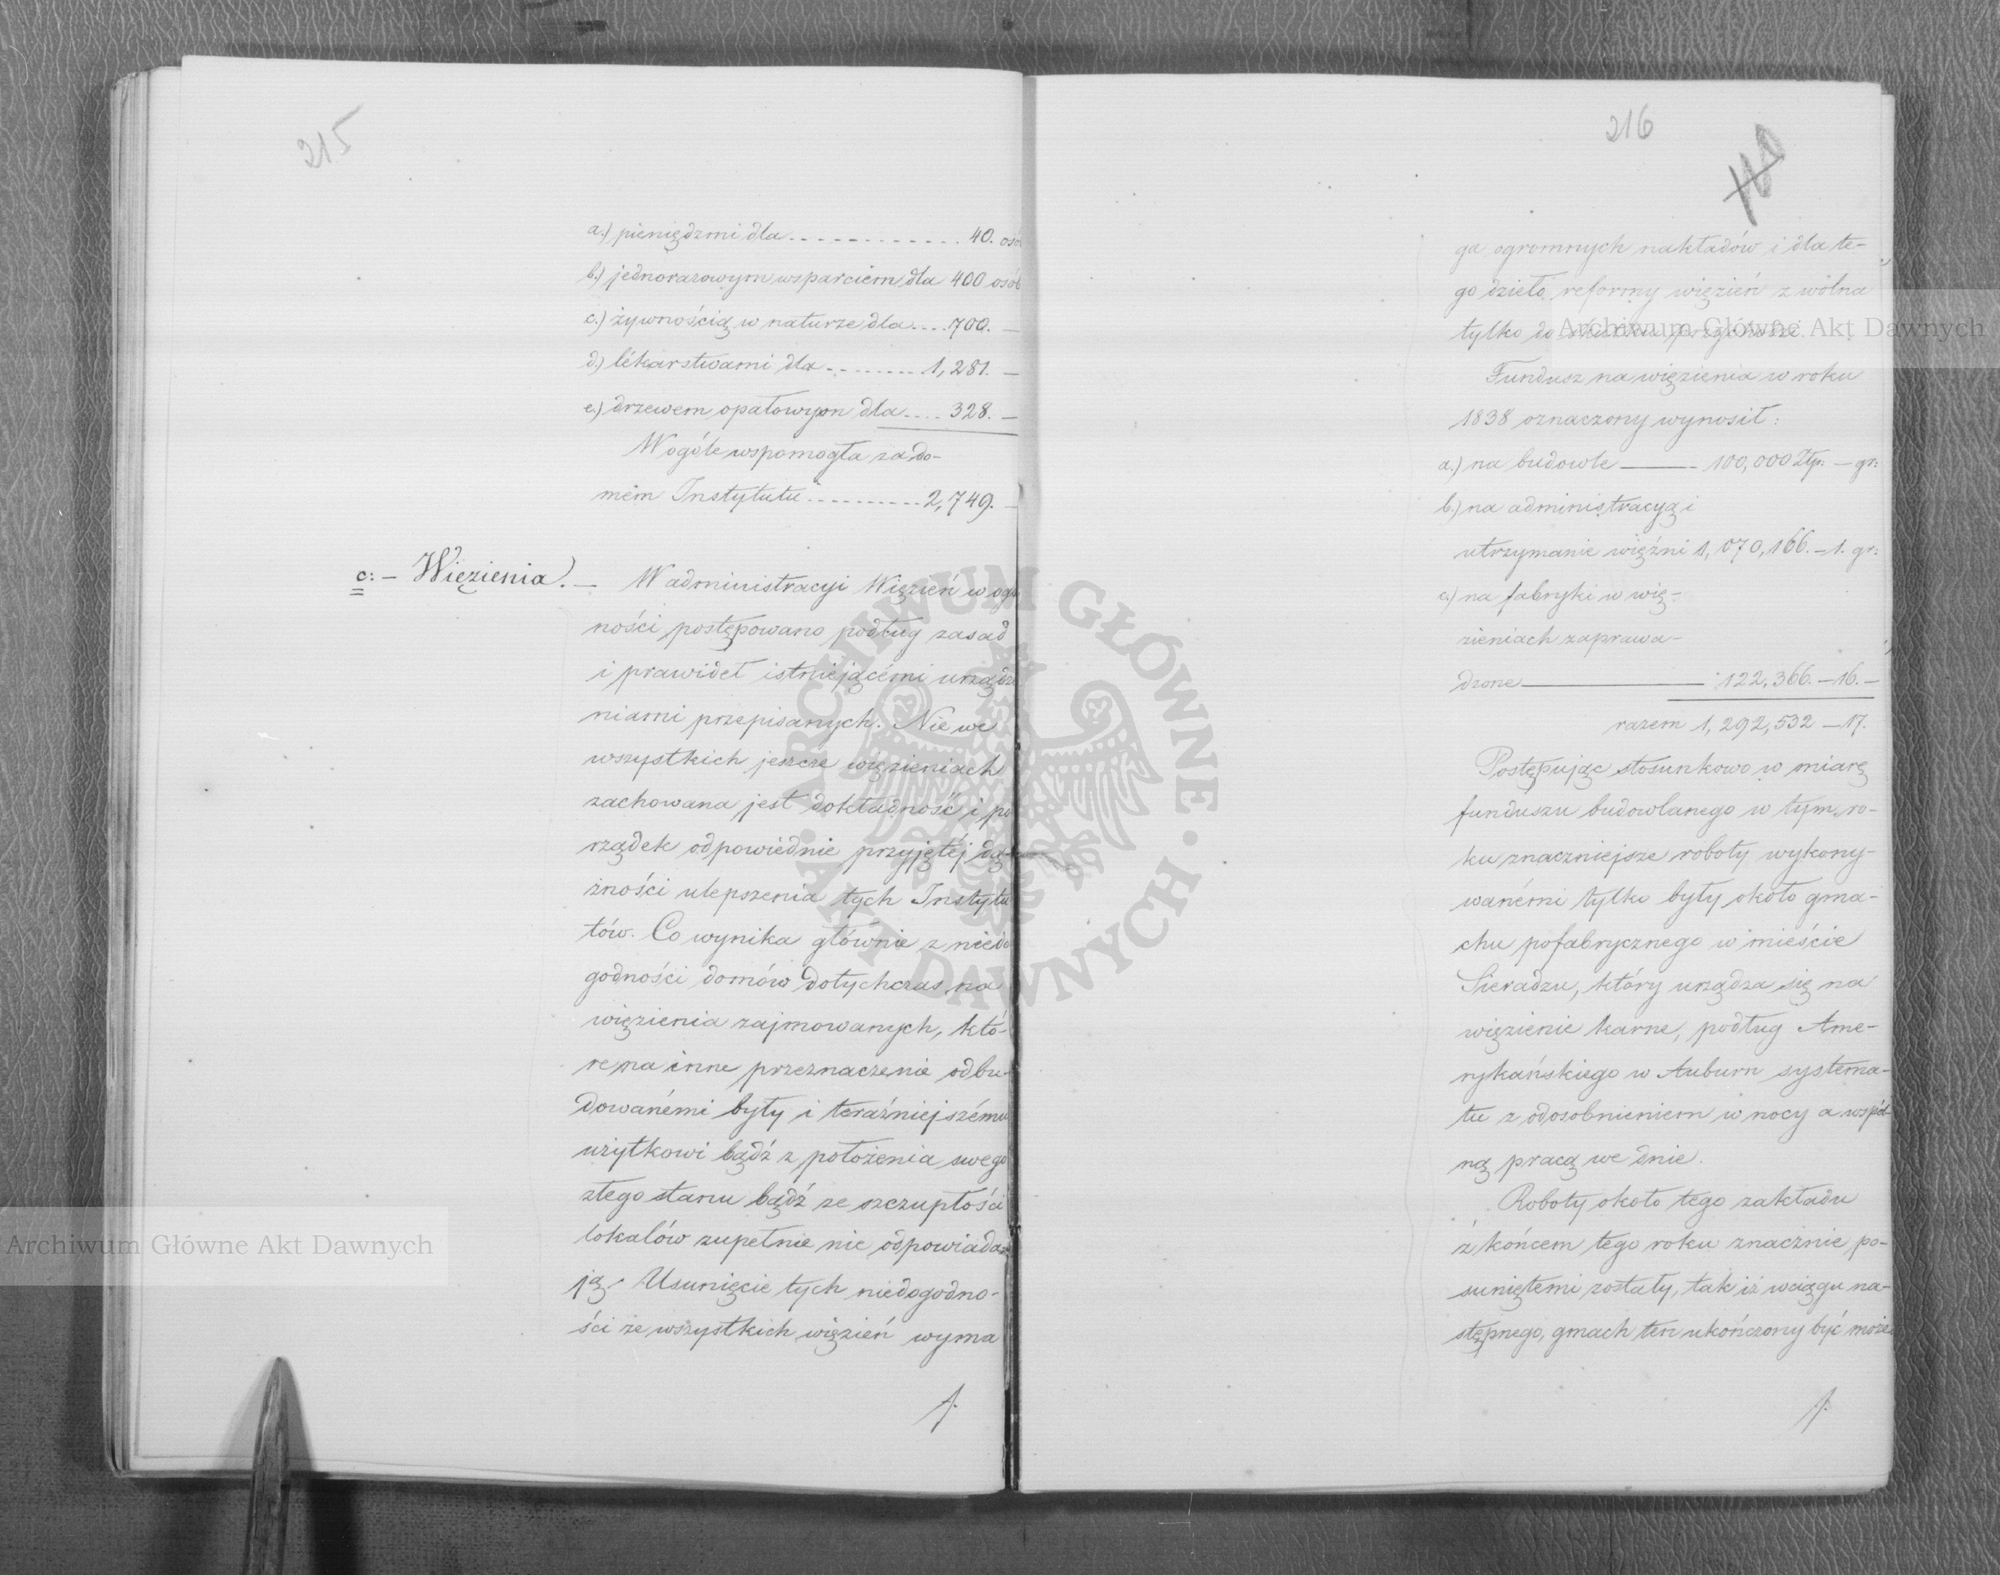 215
a.) pieniędzmi dla ............. 40. osó
b.) jednorazowym wsparciem dla 400 osób
c.) żywnością w naturze dla .... 700. —
d.) lékarstwami dla ......... 1,281. —
e.) drzewem opałowym dla .... 328. —
W ogóle wspomogła za do-
mém Instytutu .......... 2,749. —
c: — Więzienia. — W administracyi Więzień w ogó
ności postępowano podług zasad
i prawideł istniejącémi urządze
niami przepisanych. Nie we
wszystkich jeszcze więzieniach
zachowana jest dokładność i po
rządek odpowiednie przyjętéj dą-
żności ulepszenia tych Instytu
tów. Co wynika głównie z niedo
godności domów dotychczas na
więzienia zajmowanych, któ-
re na inne przeznaczenie odbu-
dowanémi były i teraźniejszému
użytkowi bądź z położenia swego
złego stanu bądź ze szczupłości
lokalów zupełnie nie odpowiada-
ją. Usunięcie tych niedogodno-
ści ze wszystkich więzień wyma
216
110
ga ogromnych nakładów i dla te-
go dzieło reformy więzień z wolna
tylko do skutku przychodzi.
Fundusz na więzienia w roku
1838 oznaczony wynosił:
a.) na budowle ——— 100,000 Złp. — gr:
b.) na administracyą i
utrzymanie więźni 1,070,166. — 1. gr:
c.) na fabryki w wię-
zieniach zaprowa-
dzone ——— 122,366. — 16. —
razem 1,292,532 — 17.
Postępując stosunkowo w miarę
funduszu budowlanego w tym ro-
ku znaczniejsze roboty wykony-
wanémi tylko były około gma-
chu pofabrycznego w mieście
Sieradzu, który urządza się na
więzienie karne, podług Ame-
rykańskiego w Auburn systema-
tu z odosobnieniem w nocy a wspól-
ną pracą we dnie.
Roboty około tego zakładu
z końcem tego roku znacznie po-
suniętemi zostały, tak iż w ciągu na-
stępnego, gmach ten ukończony być może
Archiwum Główne Akt Dawnych
Archiwum Główne Akt Dawnych
· ARCHIWUM GŁÓWNE · AKT DAWNYCH